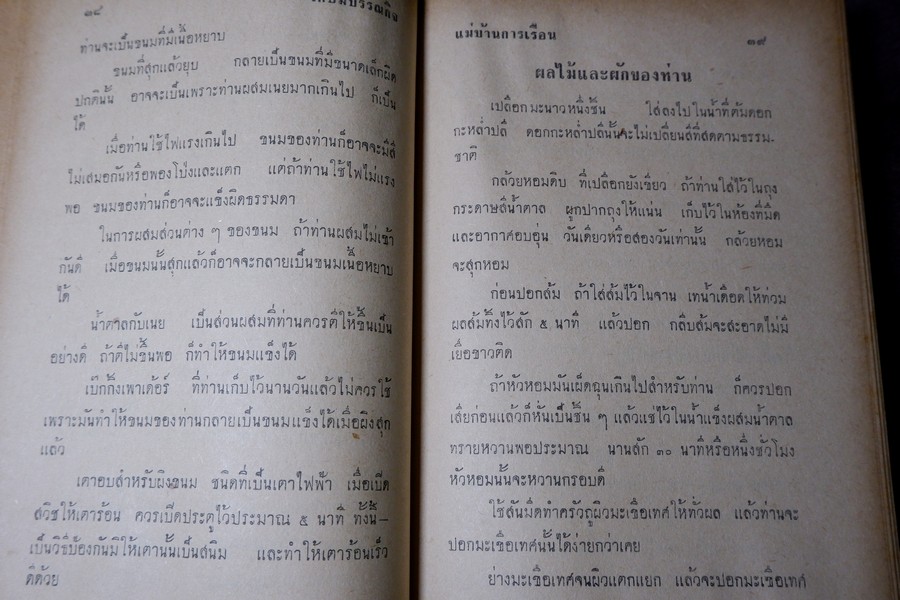 ๑๘
ท่านจะเป็นขนมที่มีเนื้อหยาบ
ขนมที่สุกแล้วยุบ กลายเป็นขนมที่มีขนาดเล็กผิด
ปกตินั้น อาจจะเป็นเพราะท่านผสมเนยมากเกินไป ก็เป็น
ได้
เมื่อท่านใช้ไฟแรงเกินไป ขนมของท่านก็อาจจะมีสี
ไม่เสมอกันหรือพองโป่งและแตก แต่ถ้าท่านใช้ไฟไม่แรง
พอ ขนมของท่านก็อาจจะแข็งผิดธรรมดา
ในการผสมส่วนต่าง ๆ ของขนม ถ้าท่านผสมไม่เข้า
กันดี เมื่อขนมนั้นสุกแล้วก็อาจจะกลายเป็นขนมเนื้อหยาบ
ได้
น้ำตาลกับเนย เป็นส่วนผสมที่ท่านควรตีให้ขึ้นเป็น
อย่างดี ถ้าตีไม่ขึ้นพอ ก็ทำให้ขนมแข็งได้
เบ๊กกิ้งเพาเด้อร์ ที่ท่านเก็บไว้นานวันแล้วไม่ควรใช้
เพราะมันทำให้ขนมของท่านกลายเป็นขนมแข็งได้เมื่อผิงสุก
แล้ว
เตาอบสำหรับผิงขนม ชนิดที่เป็นเตาไฟฟ้า เมื่อเปิด
สวิชให้เตาร้อน ควรเปิดประตูไว้ประมาณ ๕ นาที ทั้งนี้–
เป็นวิธีป้องกันมิให้เตานั้นเป็นสนิม และทำให้เตาร้อนเร็ว
ดีด้วย
แม่บ้านการเรือน
๑๙
ผลไม้และผักของท่าน
เปลือกมะนาวหนึ่งชิ้น ใส่ลงไปในน้ำที่ต้มดอก
กะหล่ำปลี ดอกกะหล่ำปลีนั้นจะไม่เปลี่ยนสีที่สดตามธรรม-
ชาติ
กล้วยหอมดิบ ที่เปลือกยังเขียว ถ้าท่านใส่ไว้ในถุง
กระดาษสีน้ำตาล ผูกปากถุงให้แน่น เก็บไว้ในห้องที่มืด
และอากาศอบอุ่น วันเดียวหรือสองวันเท่านั้น กล้วยหอม
จะสุกหอม
ก่อนปอกส้ม ถ้าใส่ส้มไว้ในจาน เทน้ำเดือดให้ท่วม
ผลส้มทิ้งไว้สัก ๕ นาที แล้วปอก กลีบส้มจะสะอาดไม่มี
เยื่อขาวติด
ถ้าหัวหอมมันเผ็ดฉุนเกินไปสำหรับท่าน ก็ควรปอก
เสียก่อนแล้วก็หั่นเป็นชิ้น ๆ แล้วแช่ไว้ในน้ำแข็งผสมน้ำตาล
ทรายหวานพอประมาณ นานสัก ๓๐ นาทีหรือหนึ่งชั่วโมง
หัวหอมนั้นจะหวานกรอบดี
ใช้สันมีดทำครัวถูผิวมะเขือเทศให้ทั่วผล แล้วท่านจะ
ปอกมะเขือเทศนั้นได้ง่ายกว่าเคย
ย่างมะเขือเทศจนผิวแตกแยก แล้วจะปอกมะเขือเทศ